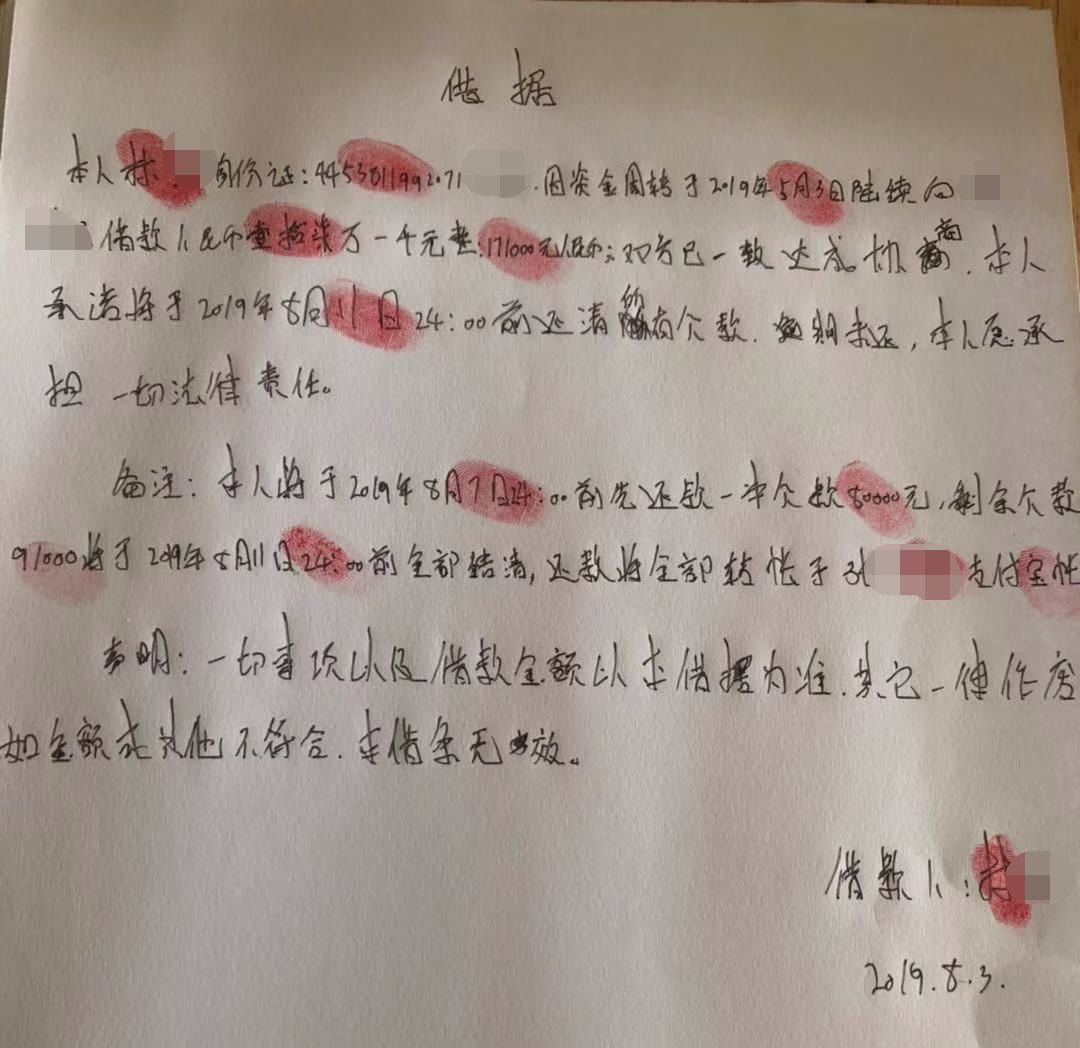 借据
本人林 身份证:4453811992071 .因资金周转于2019年5月3日陆续向
借款人民币壹拾柒万一千元整:171000元人民币;双方已一致达成协商.本人
承诺将于2019年8月11日24:00前还清所有欠款.逾期未还,本人愿承
担一切法律责任。
备注:本人将于2019年8月7日24:00前先还款一半欠款80000元,剩余欠款
91000将于2019年8月11日24:00前全部结清,还款将全部转帐于张 支付宝帐
声明:一切事项以及借款金额以本借据为准.其它一律作废
如金额或其他不符合.本借条无效。
借款人:林
2019.8.3.